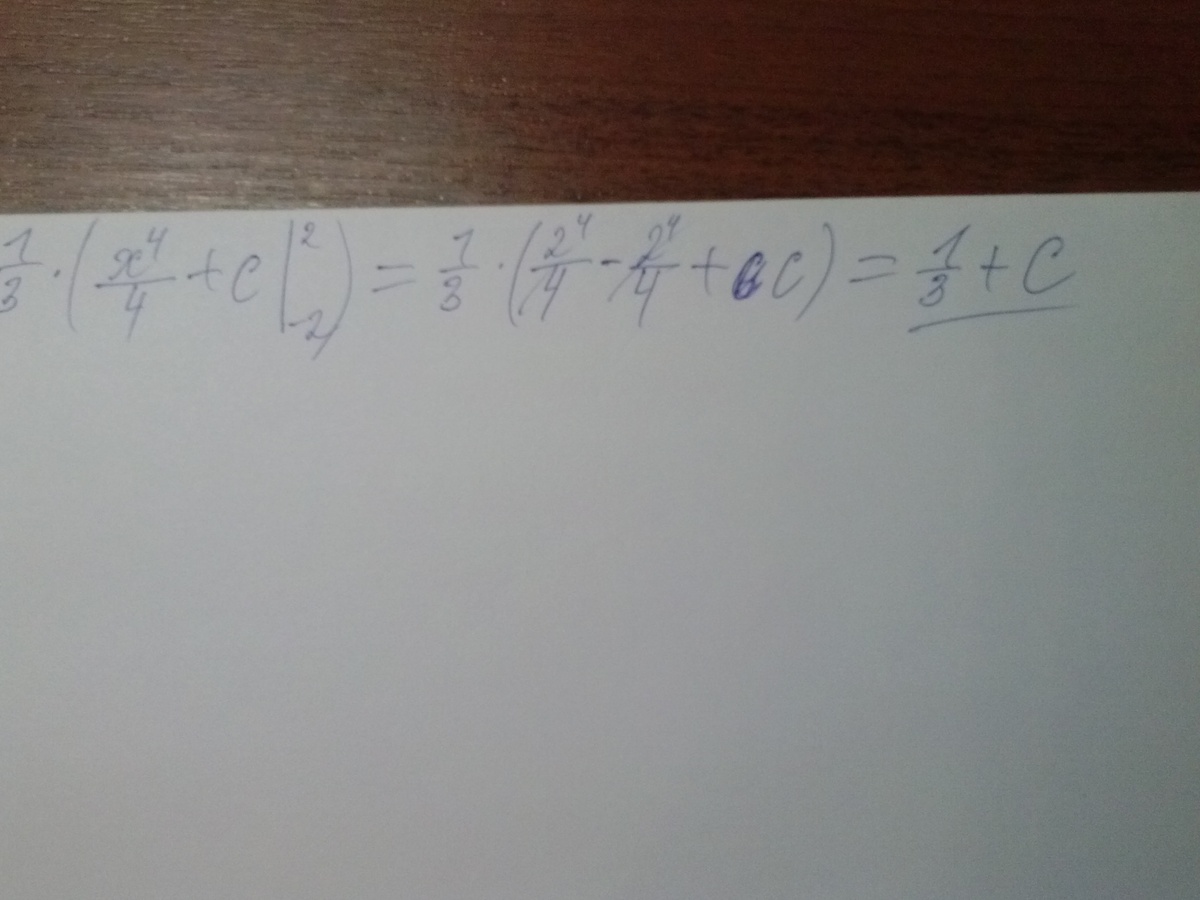 1/3 · (x⁴/4 + C |₋₂²) = 1/3 · (2⁴/4 - 2⁴/4 + C) = 1/3 + C